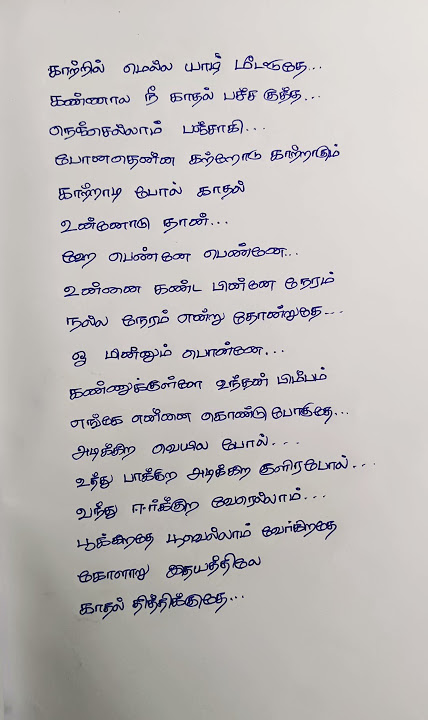 காற்றில் மெல்ல யாழ் மீட்டுதே...
கண்ணால நீ காதல் பச்ச குத்த...
நெஞ்செல்லாம் பஞ்சாகி...
போனதென்ன காற்றோடு காற்றாகும்
காற்றாடி போல் காதல்
உன்னோடு நான்...
ஹே பெண்னே பெண்னே...
உன்னை கண்ட பின்னே நேரம்
நல்ல நேரம் என்று தோன்றுதே...
ஓ மின்னும் பொன்னே...
கண்ணுக்குள்ளே உந்தன் பிம்பம்
எங்கே என்னை கொண்டு போகுதே...
அடிக்கிற வெயில போல்...
உந்து பாக்குற அடிக்கிற குளிரபோல்...
வந்து ஈர்க்குற வேரெல்லாம்...
பூக்கிறதே பூவெல்லாம் வேர்கிறதே
கோளாறு இதயத்திலே
காதல் தித்திக்குதே...